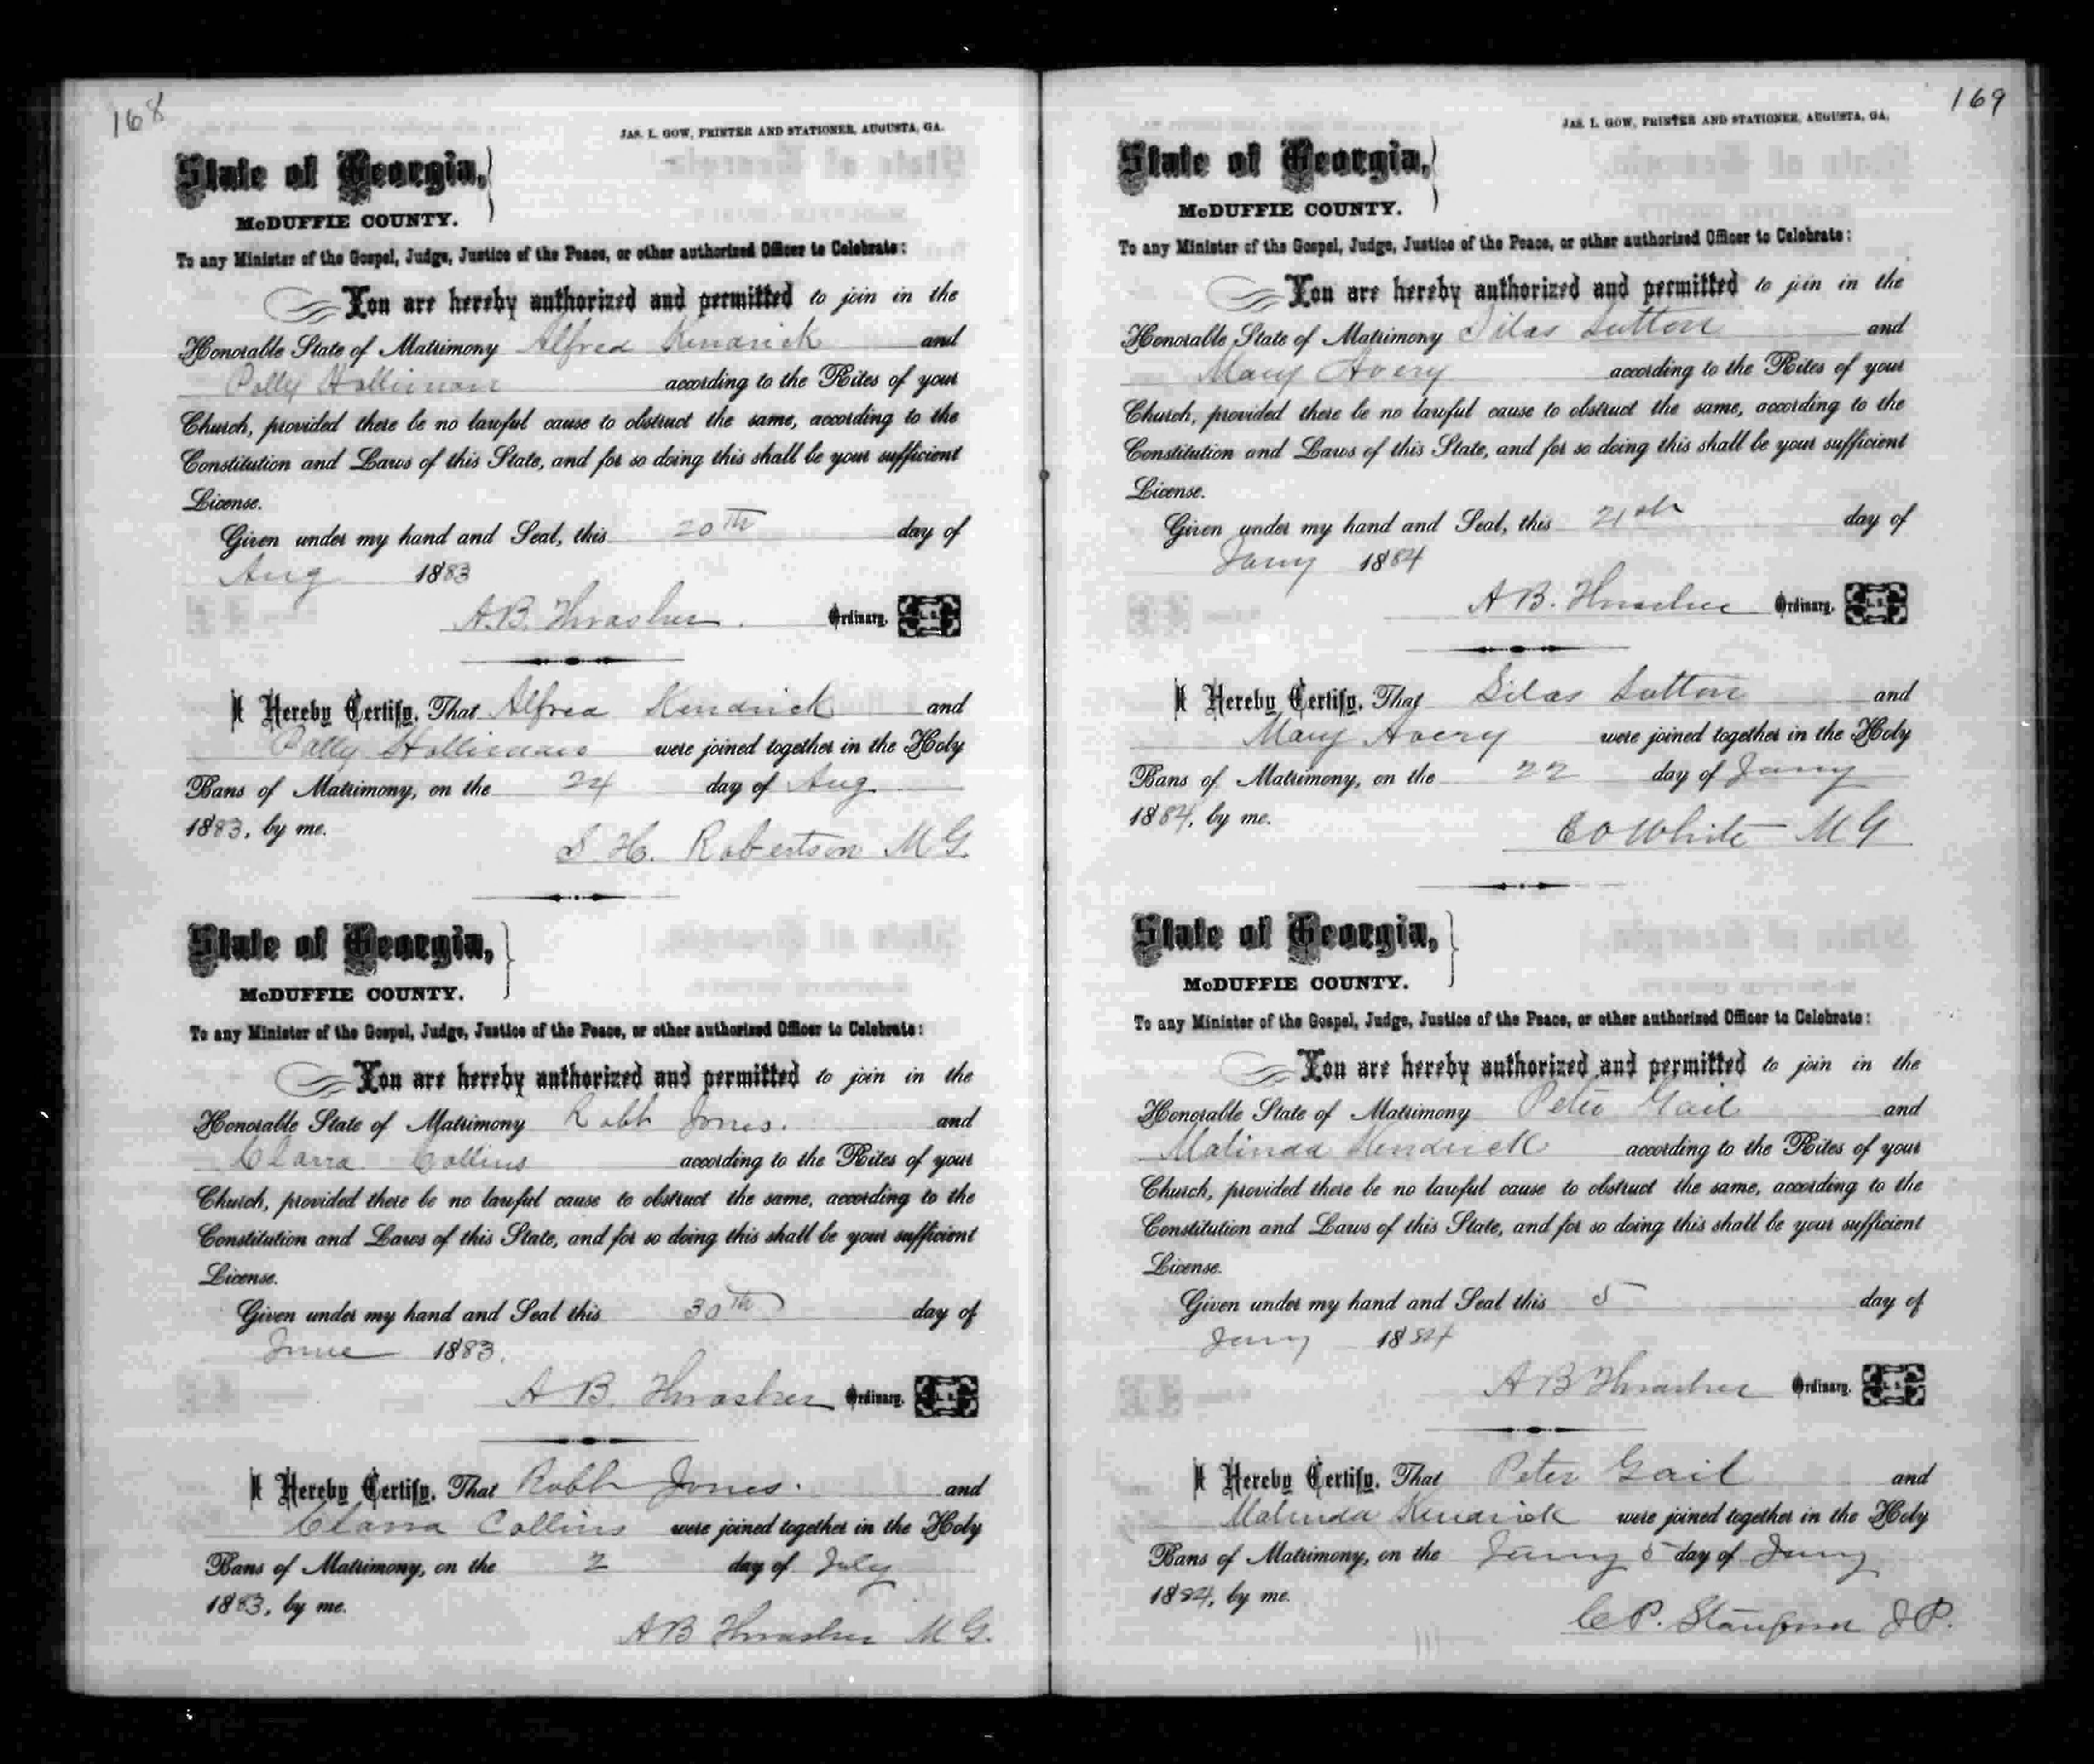 168
JAS. L. GOW, PRINTER AND STATIONER, AUGUSTA, GA.
State of Georgia,
McDUFFIE COUNTY.
To any Minister of the Gospel, Judge, Justice of the Peace, or other authorized Officer to Celebrate:
You are hereby authorized and permitted to join in the
Honorable State of Matrimony Alfred Kendrick and
Polly Holliman according to the Rites of your
Church, provided there be no lawful cause to obstruct the same, according to the
Constitution and Laws of this State, and for so doing this shall be your sufficient
License.
Given under my hand and Seal, this 20th day of
Aug 1883
A.B. Thrasher. Ordinary. L.S.
I Hereby Certify, That Alfred Kendrick and
Polly Holliman were joined together in the Holy
Bans of Matrimony, on the 24 day of Aug
1883, by me.
S. H. Robertson M G.
State of Georgia,
McDUFFIE COUNTY.
To any Minister of the Gospel, Judge, Justice of the Peace, or other authorized Officer to Celebrate:
You are hereby authorized and permitted to join in the
Honorable State of Matrimony Robb Jones. and
Clarra Collins according to the Rites of your
Church, provided there be no lawful cause to obstruct the same, according to the
Constitution and Laws of this State, and for so doing this shall be your sufficient
License.
Given under my hand and Seal this 30th day of
June 1883.
A B. Thrasher Ordinary. L.S.
I Hereby Certify, That Robb Jones. and
Clarra Collins were joined together in the Holy
Bans of Matrimony, on the 2 day of July
1883, by me.
A B Thrasher M G.
169
JAS. L. GOW, PRINTER AND STATIONER, AUGUSTA, GA.
State of Georgia,
McDUFFIE COUNTY.
To any Minister of the Gospel, Judge, Justice of the Peace, or other authorized Officer to Celebrate:
You are hereby authorized and permitted to join in the
Honorable State of Matrimony Silas Sutton and
Mary Avery according to the Rites of your
Church, provided there be no lawful cause to obstruct the same, according to the
Constitution and Laws of this State, and for so doing this shall be your sufficient
License.
Given under my hand and Seal, this 21st day of
Jany 1884
A B. Thrasher Ordinary. L.S.
I Hereby Certify, That Silas Sutton and
Mary Avery were joined together in the Holy
Bans of Matrimony, on the 22 day of Jany
1884, by me.
E O White M G
State of Georgia,
McDUFFIE COUNTY.
To any Minister of the Gospel, Judge, Justice of the Peace, or other authorized Officer to Celebrate:
You are hereby authorized and permitted to join in the
Honorable State of Matrimony Peter Gail and
Malinda Kendrick according to the Rites of your
Church, provided there be no lawful cause to obstruct the same, according to the
Constitution and Laws of this State, and for so doing this shall be your sufficient
License.
Given under my hand and Seal this 5 day of
Jany 1884
A B Thrasher Ordinary. L.S.
I Hereby Certify, That Peter Gail and
Malinda Kendrick were joined together in the Holy
Bans of Matrimony, on the Jany 5 day of Jany
1884, by me.
C P. J P.